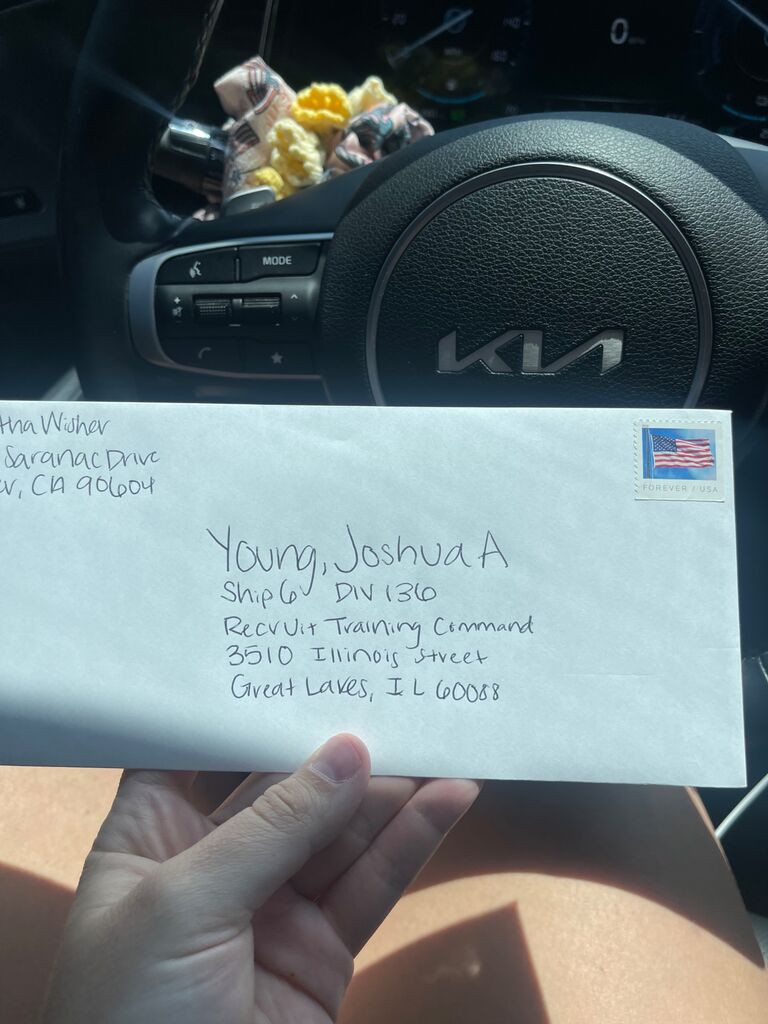 0
MODE
KIA
tha Wisher
Saranac Drive
er, CA 90604
FOREVER / USA
Young, Joshua A
Ship 6 DIV 136
Recruit Training Command
3510 Illinois Street
Great Lakes, IL 60088